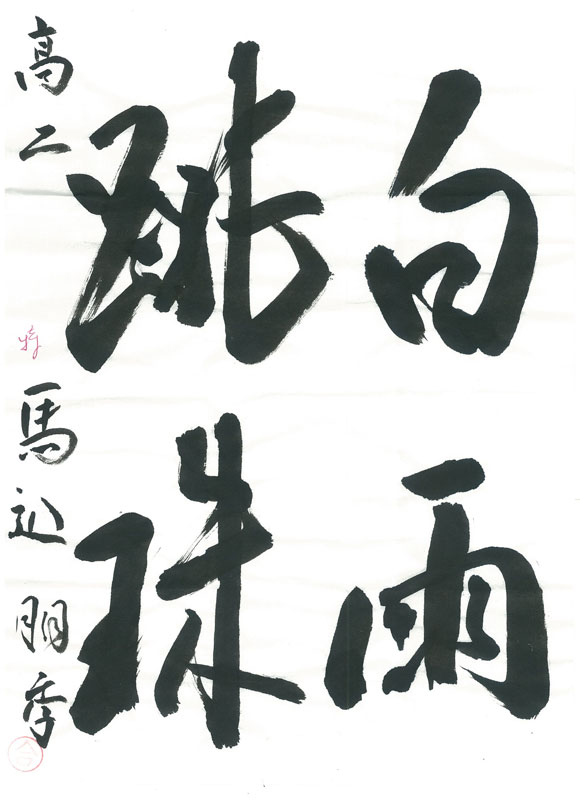 白雨
跳珠
高二 馬込朋季
特